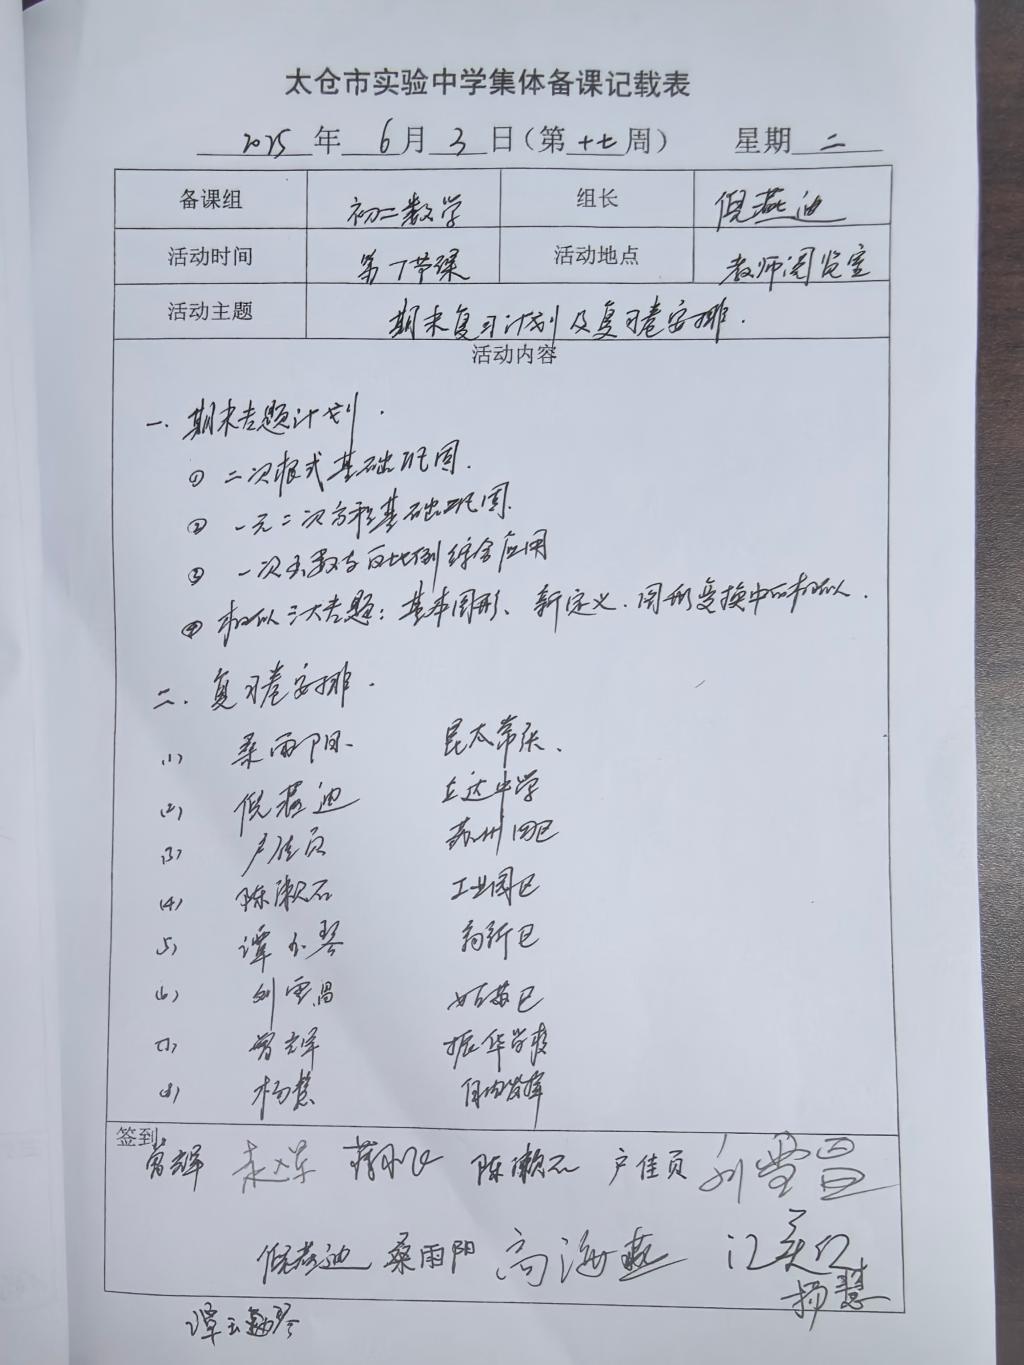 太仓市实验中学集体备课记载表
2025 年 6 月 3 日(第 十七 周) 星期 二
备课组 初二数学 组长 倪燕迪
活动时间 第7节课 活动地点 教师阅览室
活动主题 期末复习计划及复习卷安排.
活动内容
一. 期末专题计划.
① 二次根式基础巩固.
② 一元二次方程基础巩固.
③ 一次函数与反比例综合应用
④ 相似三大专题: 基本图形、新定义. 图形变换中的相似.
二. 复习卷安排.
(1) 桑雨阳. 昆太常张、
(2) 倪燕迪 立达中学
(3) 卢佳员 苏州四区
(4) 陈漱石 工业园区
(5) 谭 琴 高新区
(6) 刘雪昌 姑苏区
(7) 曾辉 振华学校
(8) 杨慧 自由发挥
签到
曾辉 陈漱石 卢佳员 刘雪昌
倪燕迪 桑雨阳 高海燕
杨慧
谭 琴